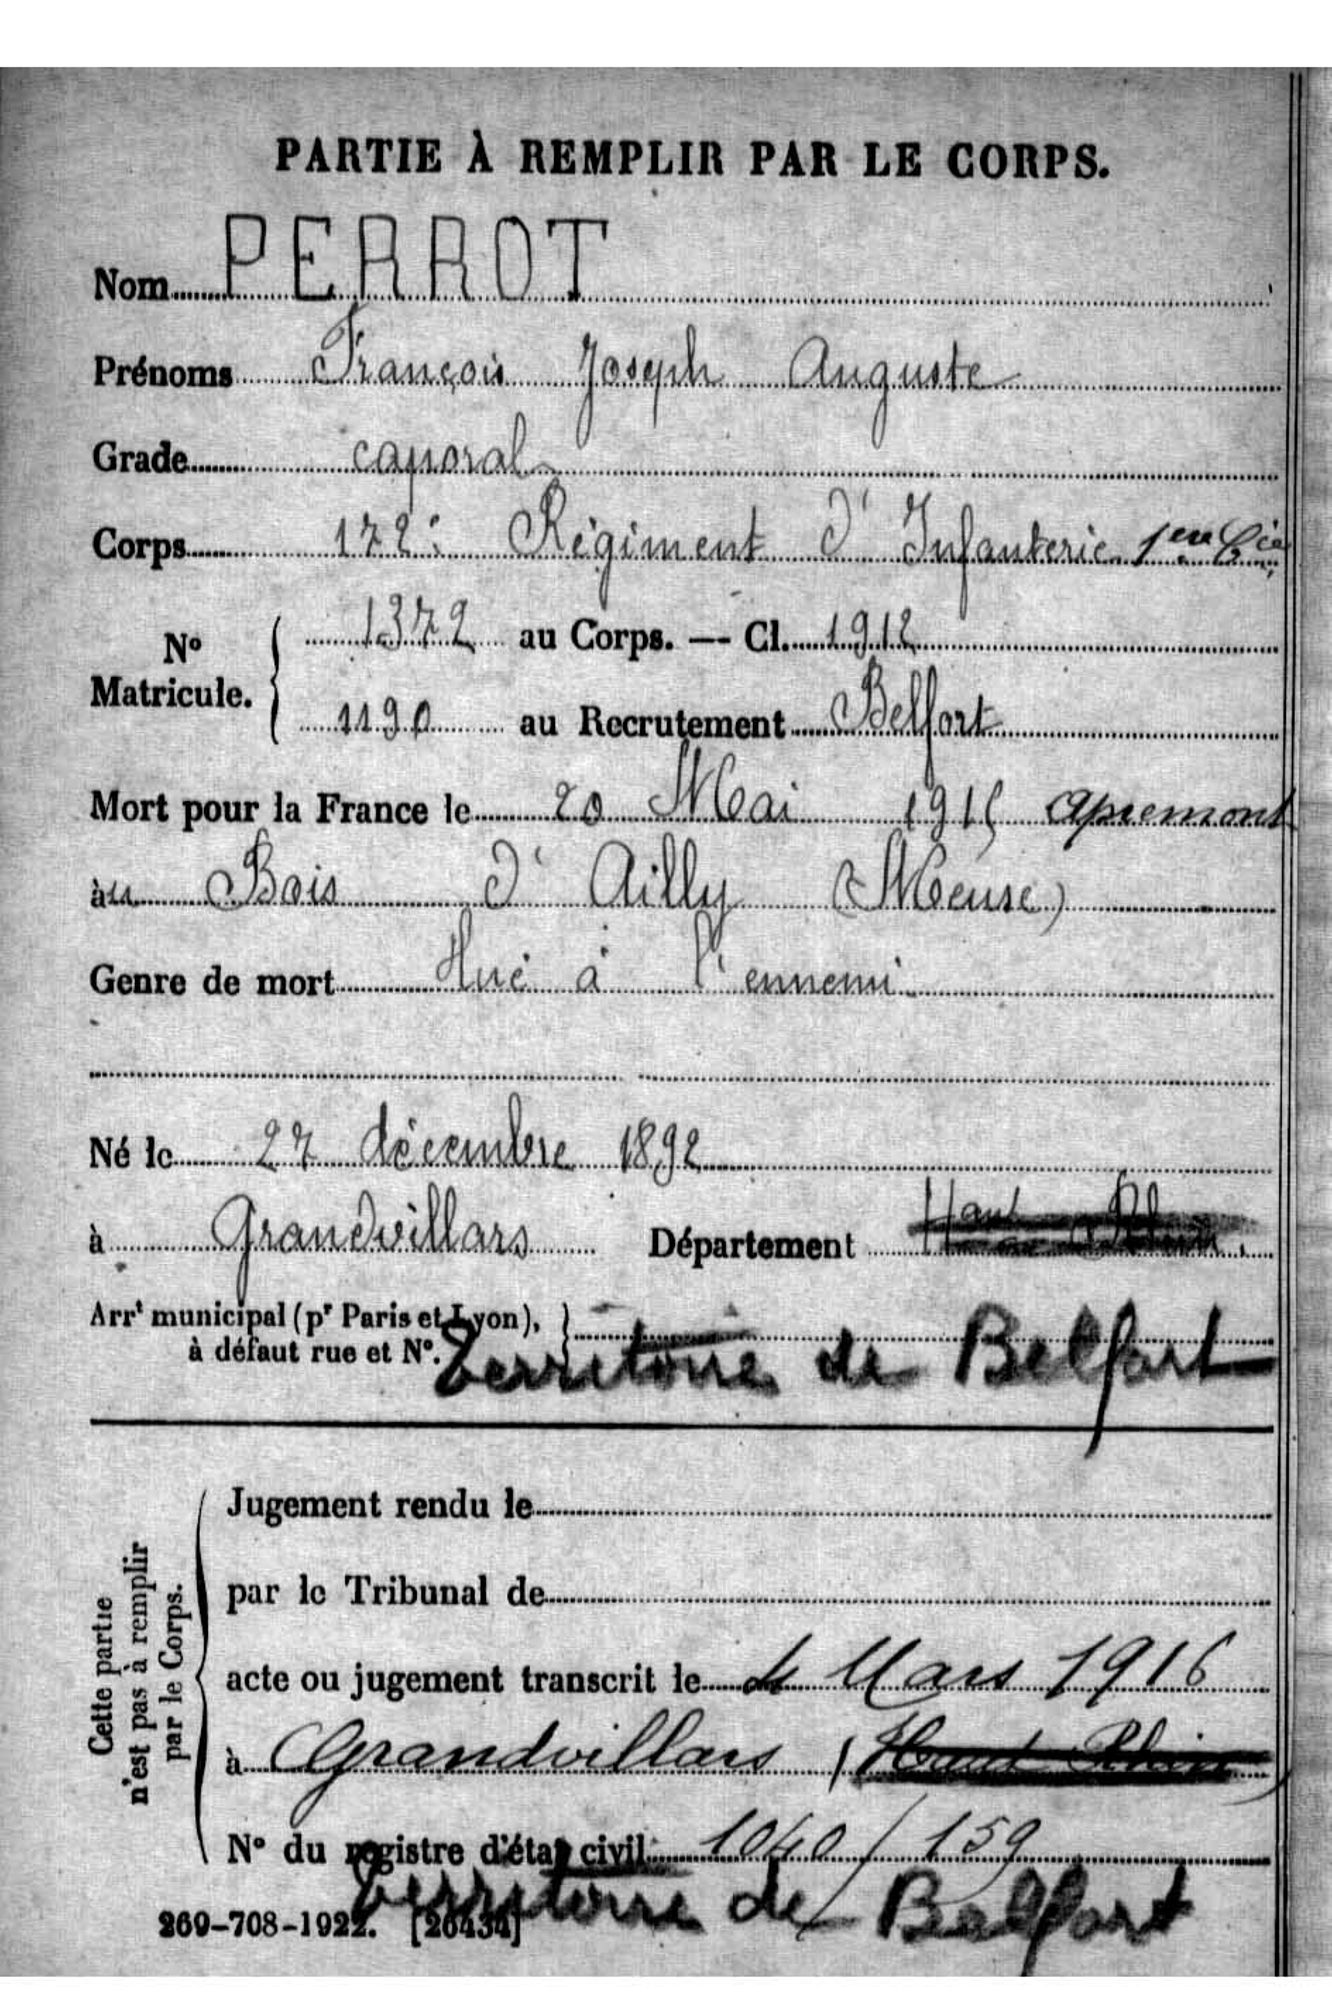 PARTIE À REMPLIR PAR LE CORPS.
Nom PERROT
Prénoms François Joseph Auguste
Grade caporal
Corps 172e Régiment d'Infanterie 1ere Cie
No Matricule. 1372 au Corps. — Cl. 1912
1190 au Recrutement Belfort
Mort pour la France le 20 Mai 1915 Apremont
au Bois d'Ailly (Meuse)
Genre de mort Tué à l'ennemi
Né le 27 décembre 1892
à Grandvillars Département Haut Rhin
Arrt municipal (pr Paris et Lyon),
à défaut rue et No. Territoire de Belfort
Cette partie
n'est pas à remplir
par le Corps.
Jugement rendu le
par le Tribunal de
acte ou jugement transcrit le 4 Mars 1916
à Grandvillars (Haut Rhin)
No du registre d'état civil 1040/159
Territoire de Belfort
269-708-1922. [26434]